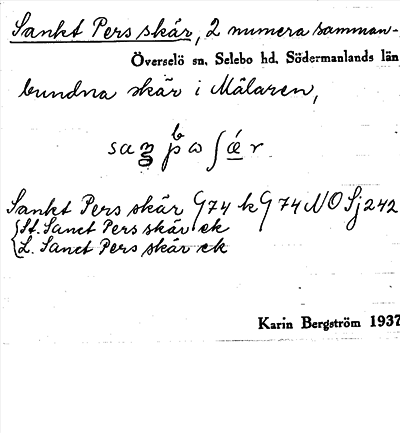 Sankt Pers skär, 2 numera samman-
Överselö sn, Selebo hd, Södermanlands län
bundna skär i Mälaren,
Sankt Pers skär G74 k G74NO Sj242
St. Sanct Pers skär ek
L. Sanct Pers skär ek
Karin Bergström 1937